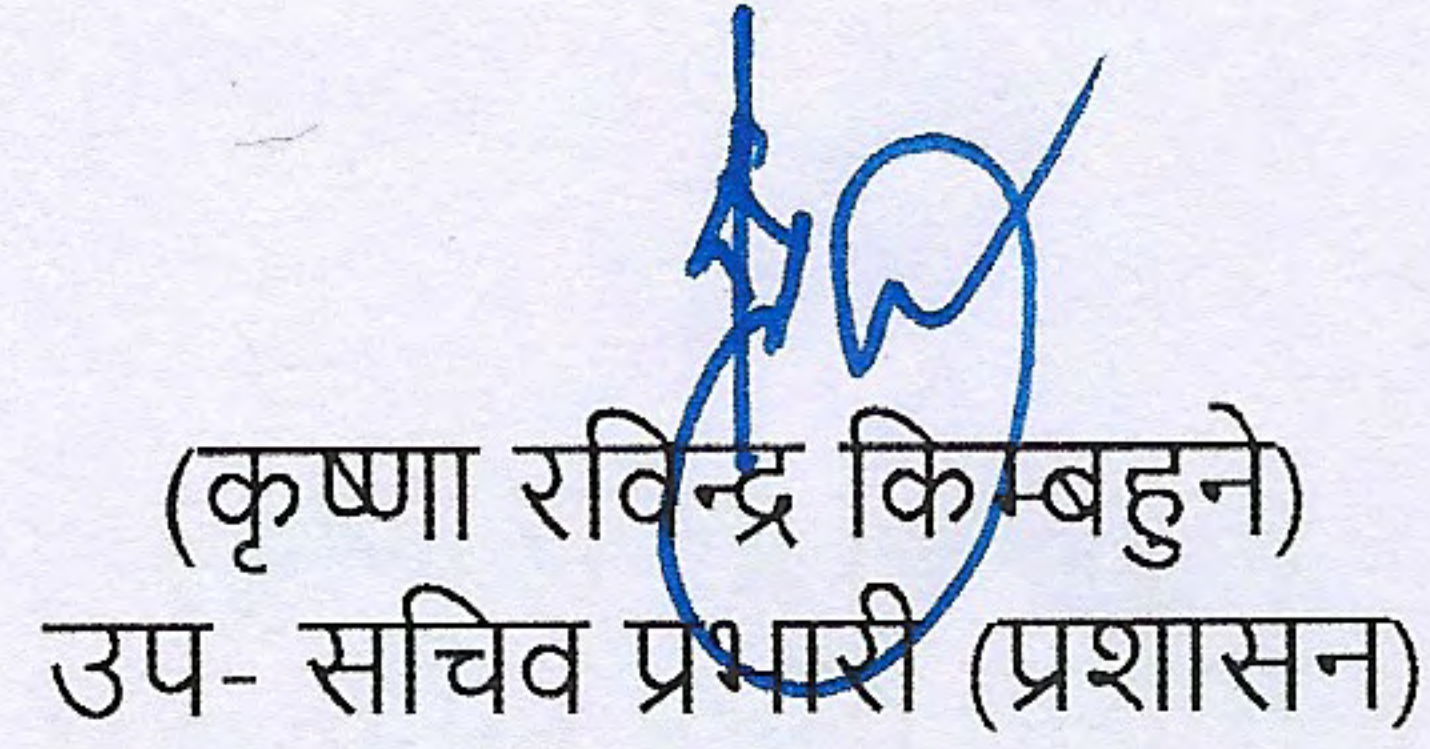 (कृष्णा रविन्द्र किम्बहुने)
उप- सचिव प्रभारी (प्रशासन)